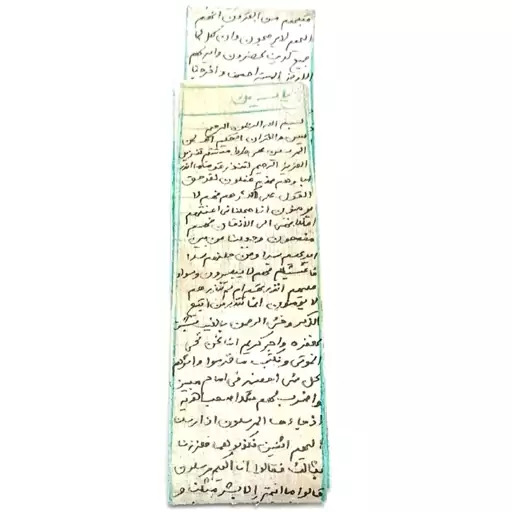 قبلهم من القرون انهم
اليهم لا يرجعون وان كل لما
جميع لدينا محضرون واية لهم
الارض الميتة احيينها واخرجنا
ياسين
بسم الله الرحمن الرحيم
يس والقران الحكيم انك لمن
المرسلين على صراط مستقيم تنزيل
العزيز الرحيم لتنذر قوما ما انذر
اباؤهم فهم غفلون لقد حق
القول على اكثرهم فهم لا
يومنون انا جعلنا في اعنقهم
اغللا فهي الى الاذقان فهم
مقمحون وجعلنا من بين
ايديهم سدا ومن خلفهم سدا
فاغشينهم فهم لا يبصرون وسواء
عليهم انذرتهم ام لم تنذرهم
لا يومنون انما تنذر من اتبع
الذكر وخشي الرحمن بالغيب فبشره
بمغفرة واجر كريم انا نحن نحي
الموتى ونكتب ما قدموا واثرهم
وكل شي احصينه في امام مبين
واضرب لهم مثلا اصحب القرية
اذ جاءها المرسلون اذ ارسلنا
اليهم اثنين فكذبوهما فعززنا
بثالث فقالوا انا اليكم مرسلون
قالوا ما انتم الا بشر مثلنا و